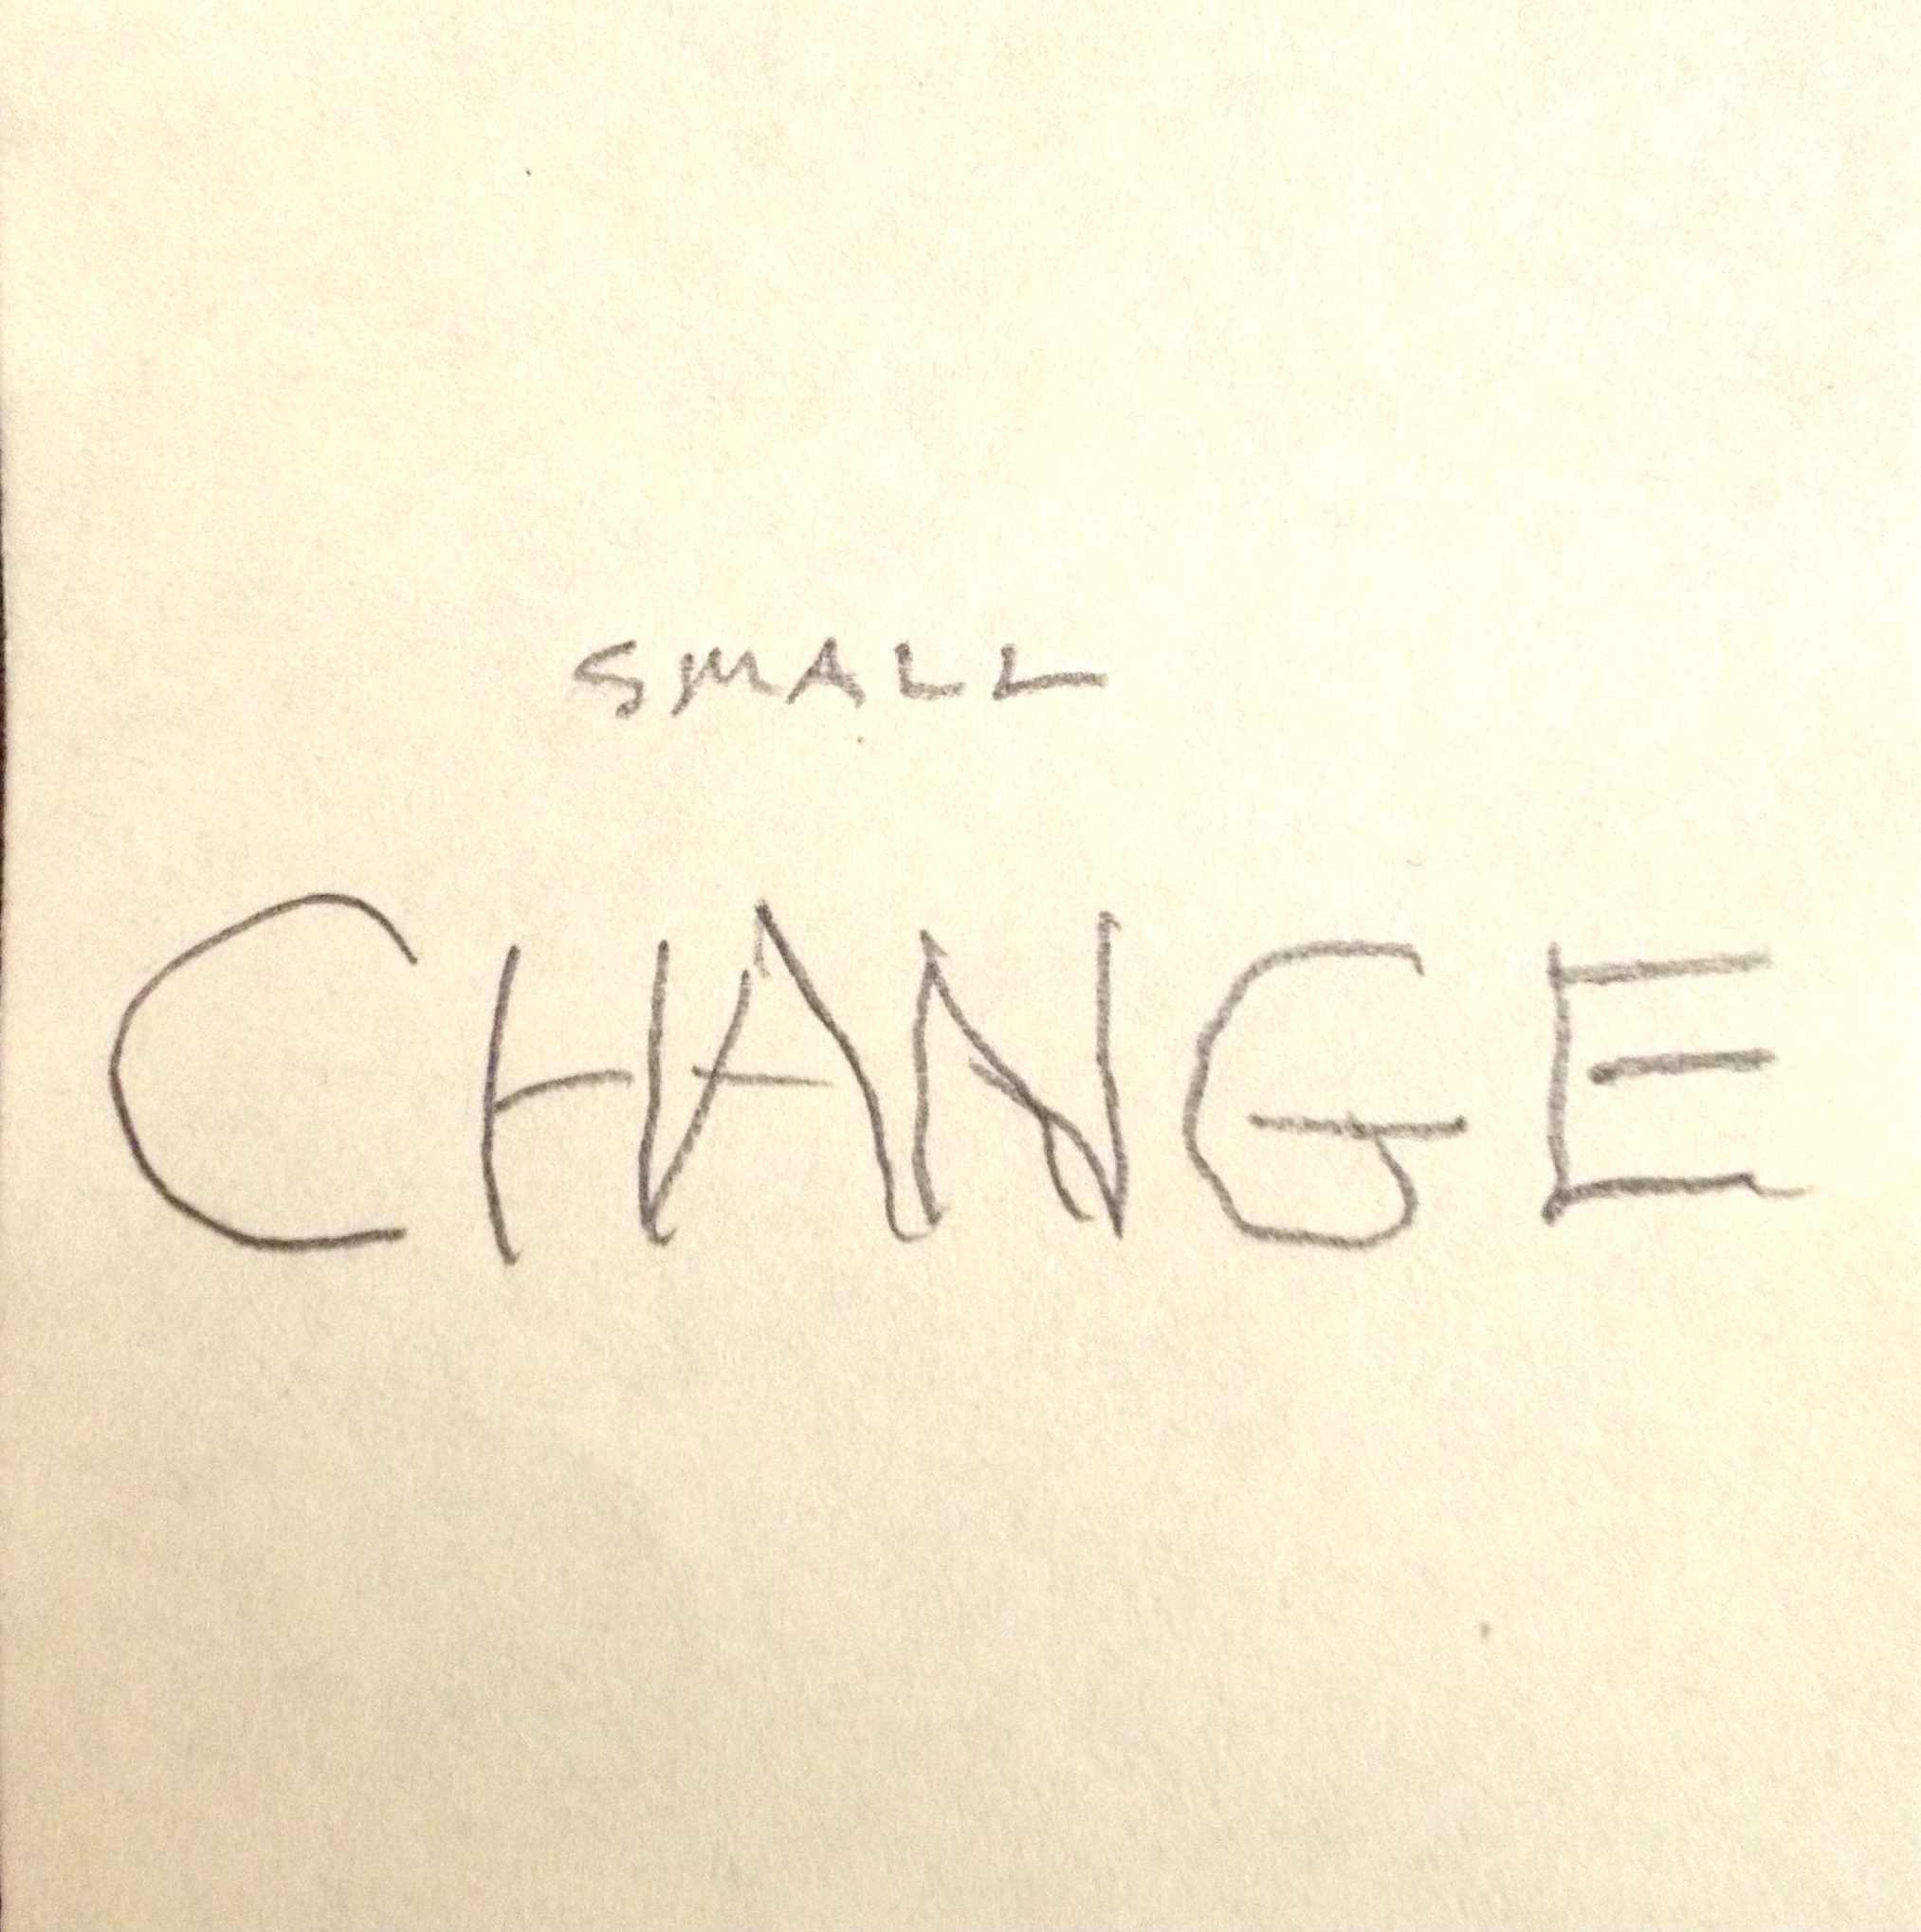 SMALL
CHANGE